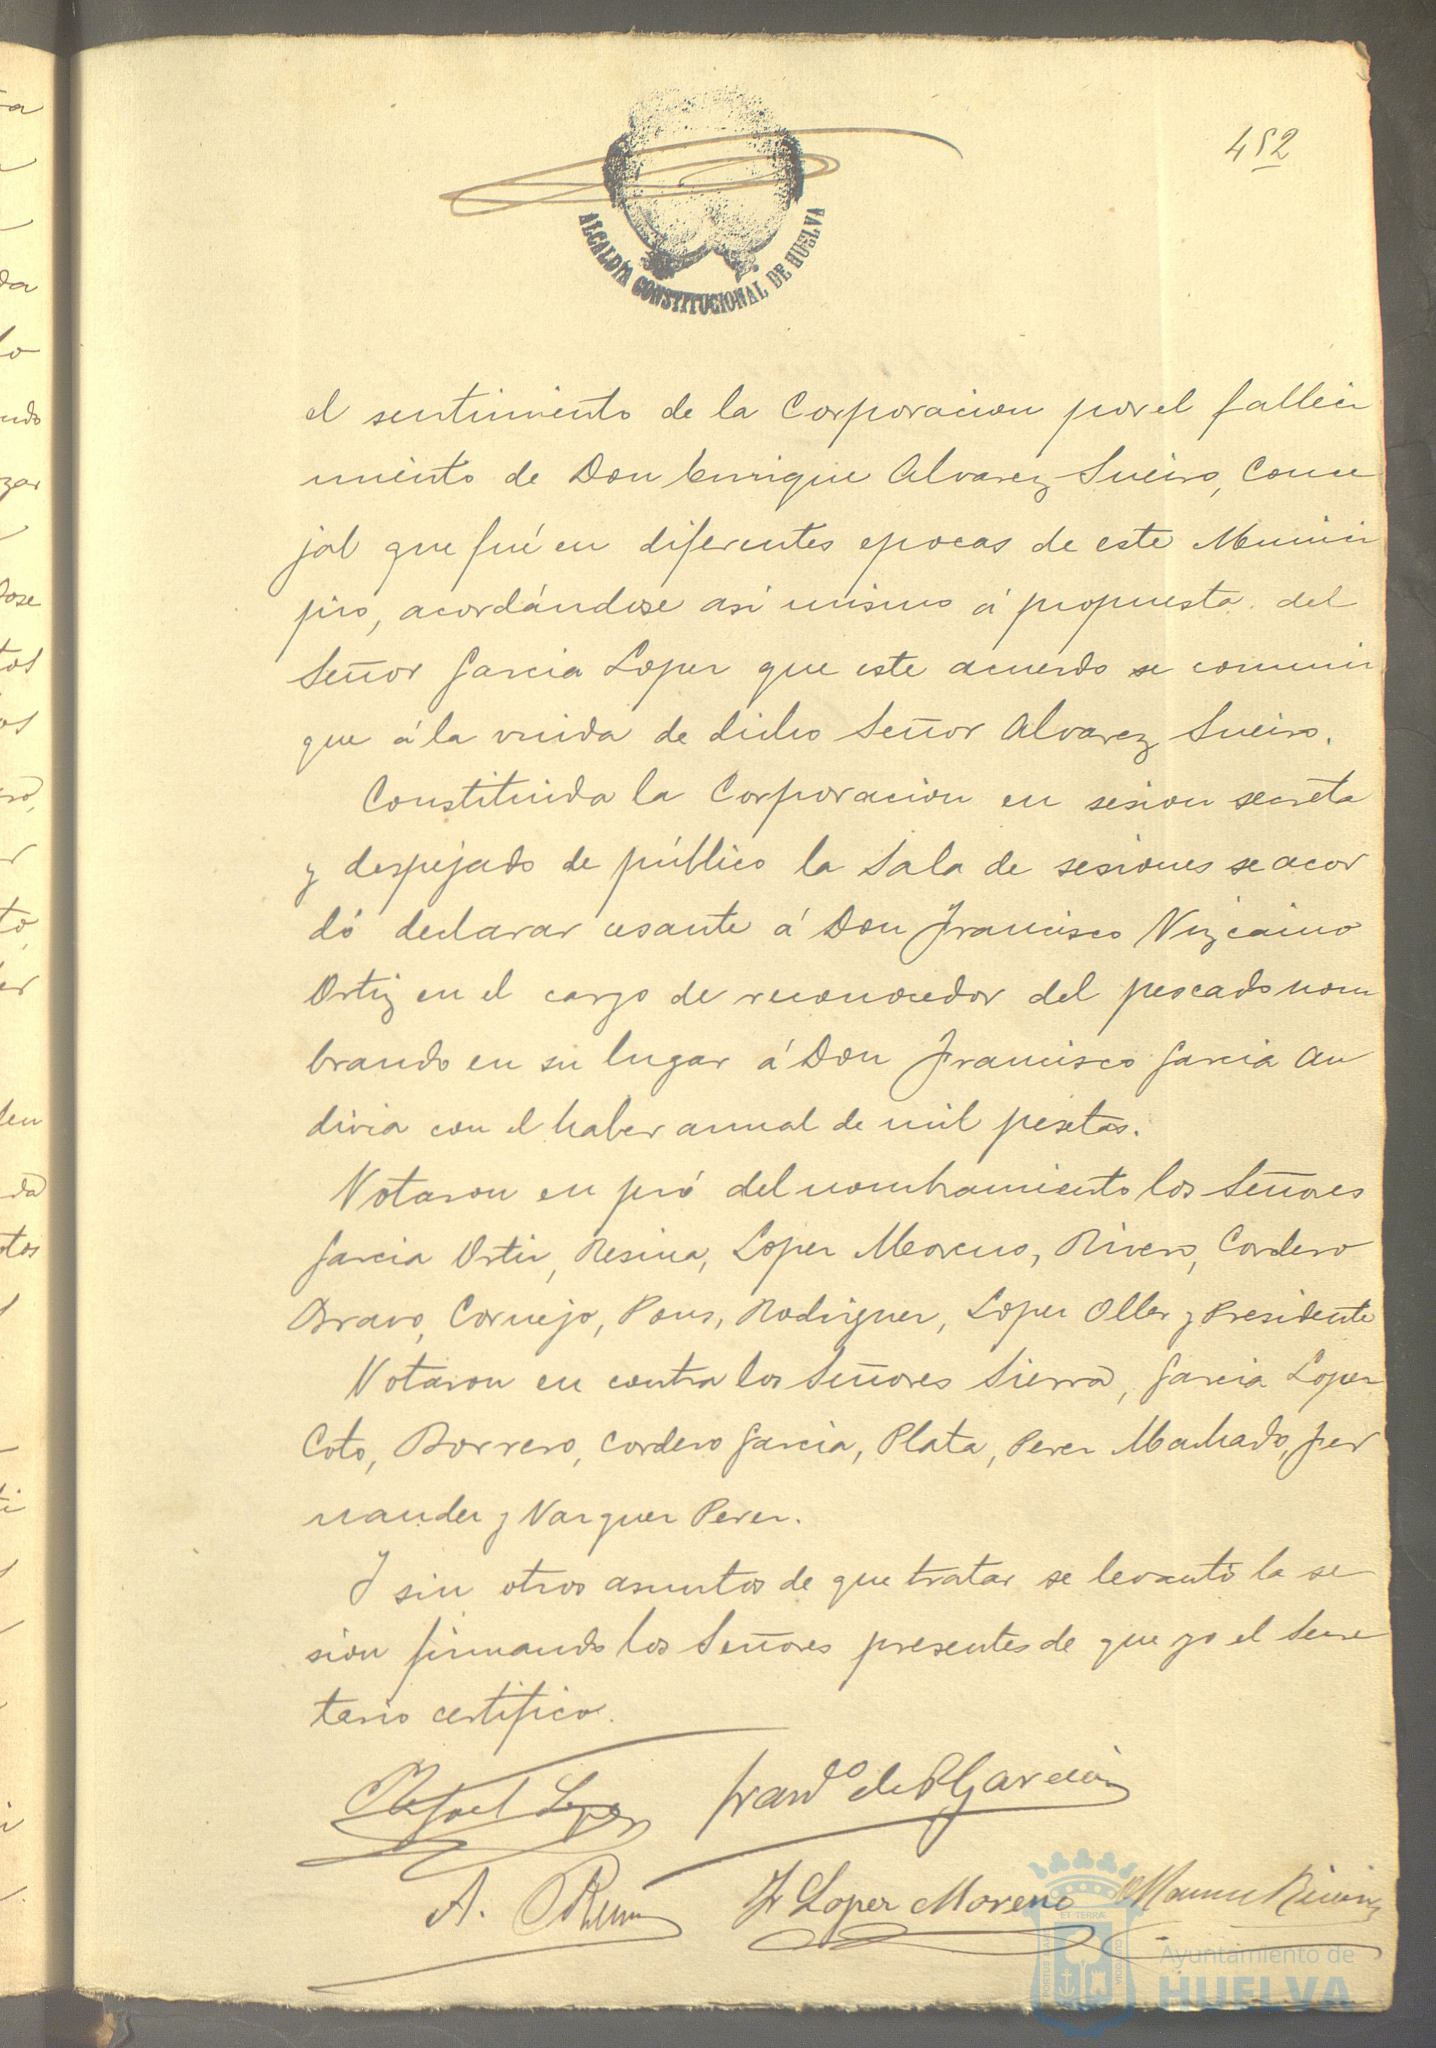 452
ALCALDÍA CONSTITUCIONAL DE HUELVA
el sentimiento de la Corporacion por el falleci
miento de Don Enrique Alvarez Sueiro, Conce
jal que fué en diferentes epocas de este Munici
pio, acordándose asi mismo á propuesta del
Señor Garcia Lopez que este acuerdo se comuni
que á la viuda de dicho Señor Alvarez Sueiro.
Constituida la Corporacion en sesion secreta
y despejado de público la Sala de sesiones se acor
dó declarar cesante á Don Francisco Vizcaino
Ortiz en el cargo de reconocedor del pescado nom
brando en su lugar á Don Francisco Garcia An
divia con el haber anual de mil pesetas.
Votaron en pró del nombramiento los Señores
Garcia Ortiz, Resina, Lopez Moreno, Rivero, Cordero
Bravo, Cornejo, Pons, Rodriguez, Lopez Oller y Presidente
Votaron en contra los Señores Sierra, Garcia Lopez
Coto, Borrero, Cordero Garcia, Plata, Perez Machado, Fer
nandez y Vazquez Perez.
Y sin otros asuntos de que tratar se levantó la se
sion firmando los Señores presentes de que yo el Secre
tario certifico.
Rafael Lopez
Franco de P Garcia
A.
Fr Lopez Moreno
Manuel
Ayuntamiento de
HUELVA